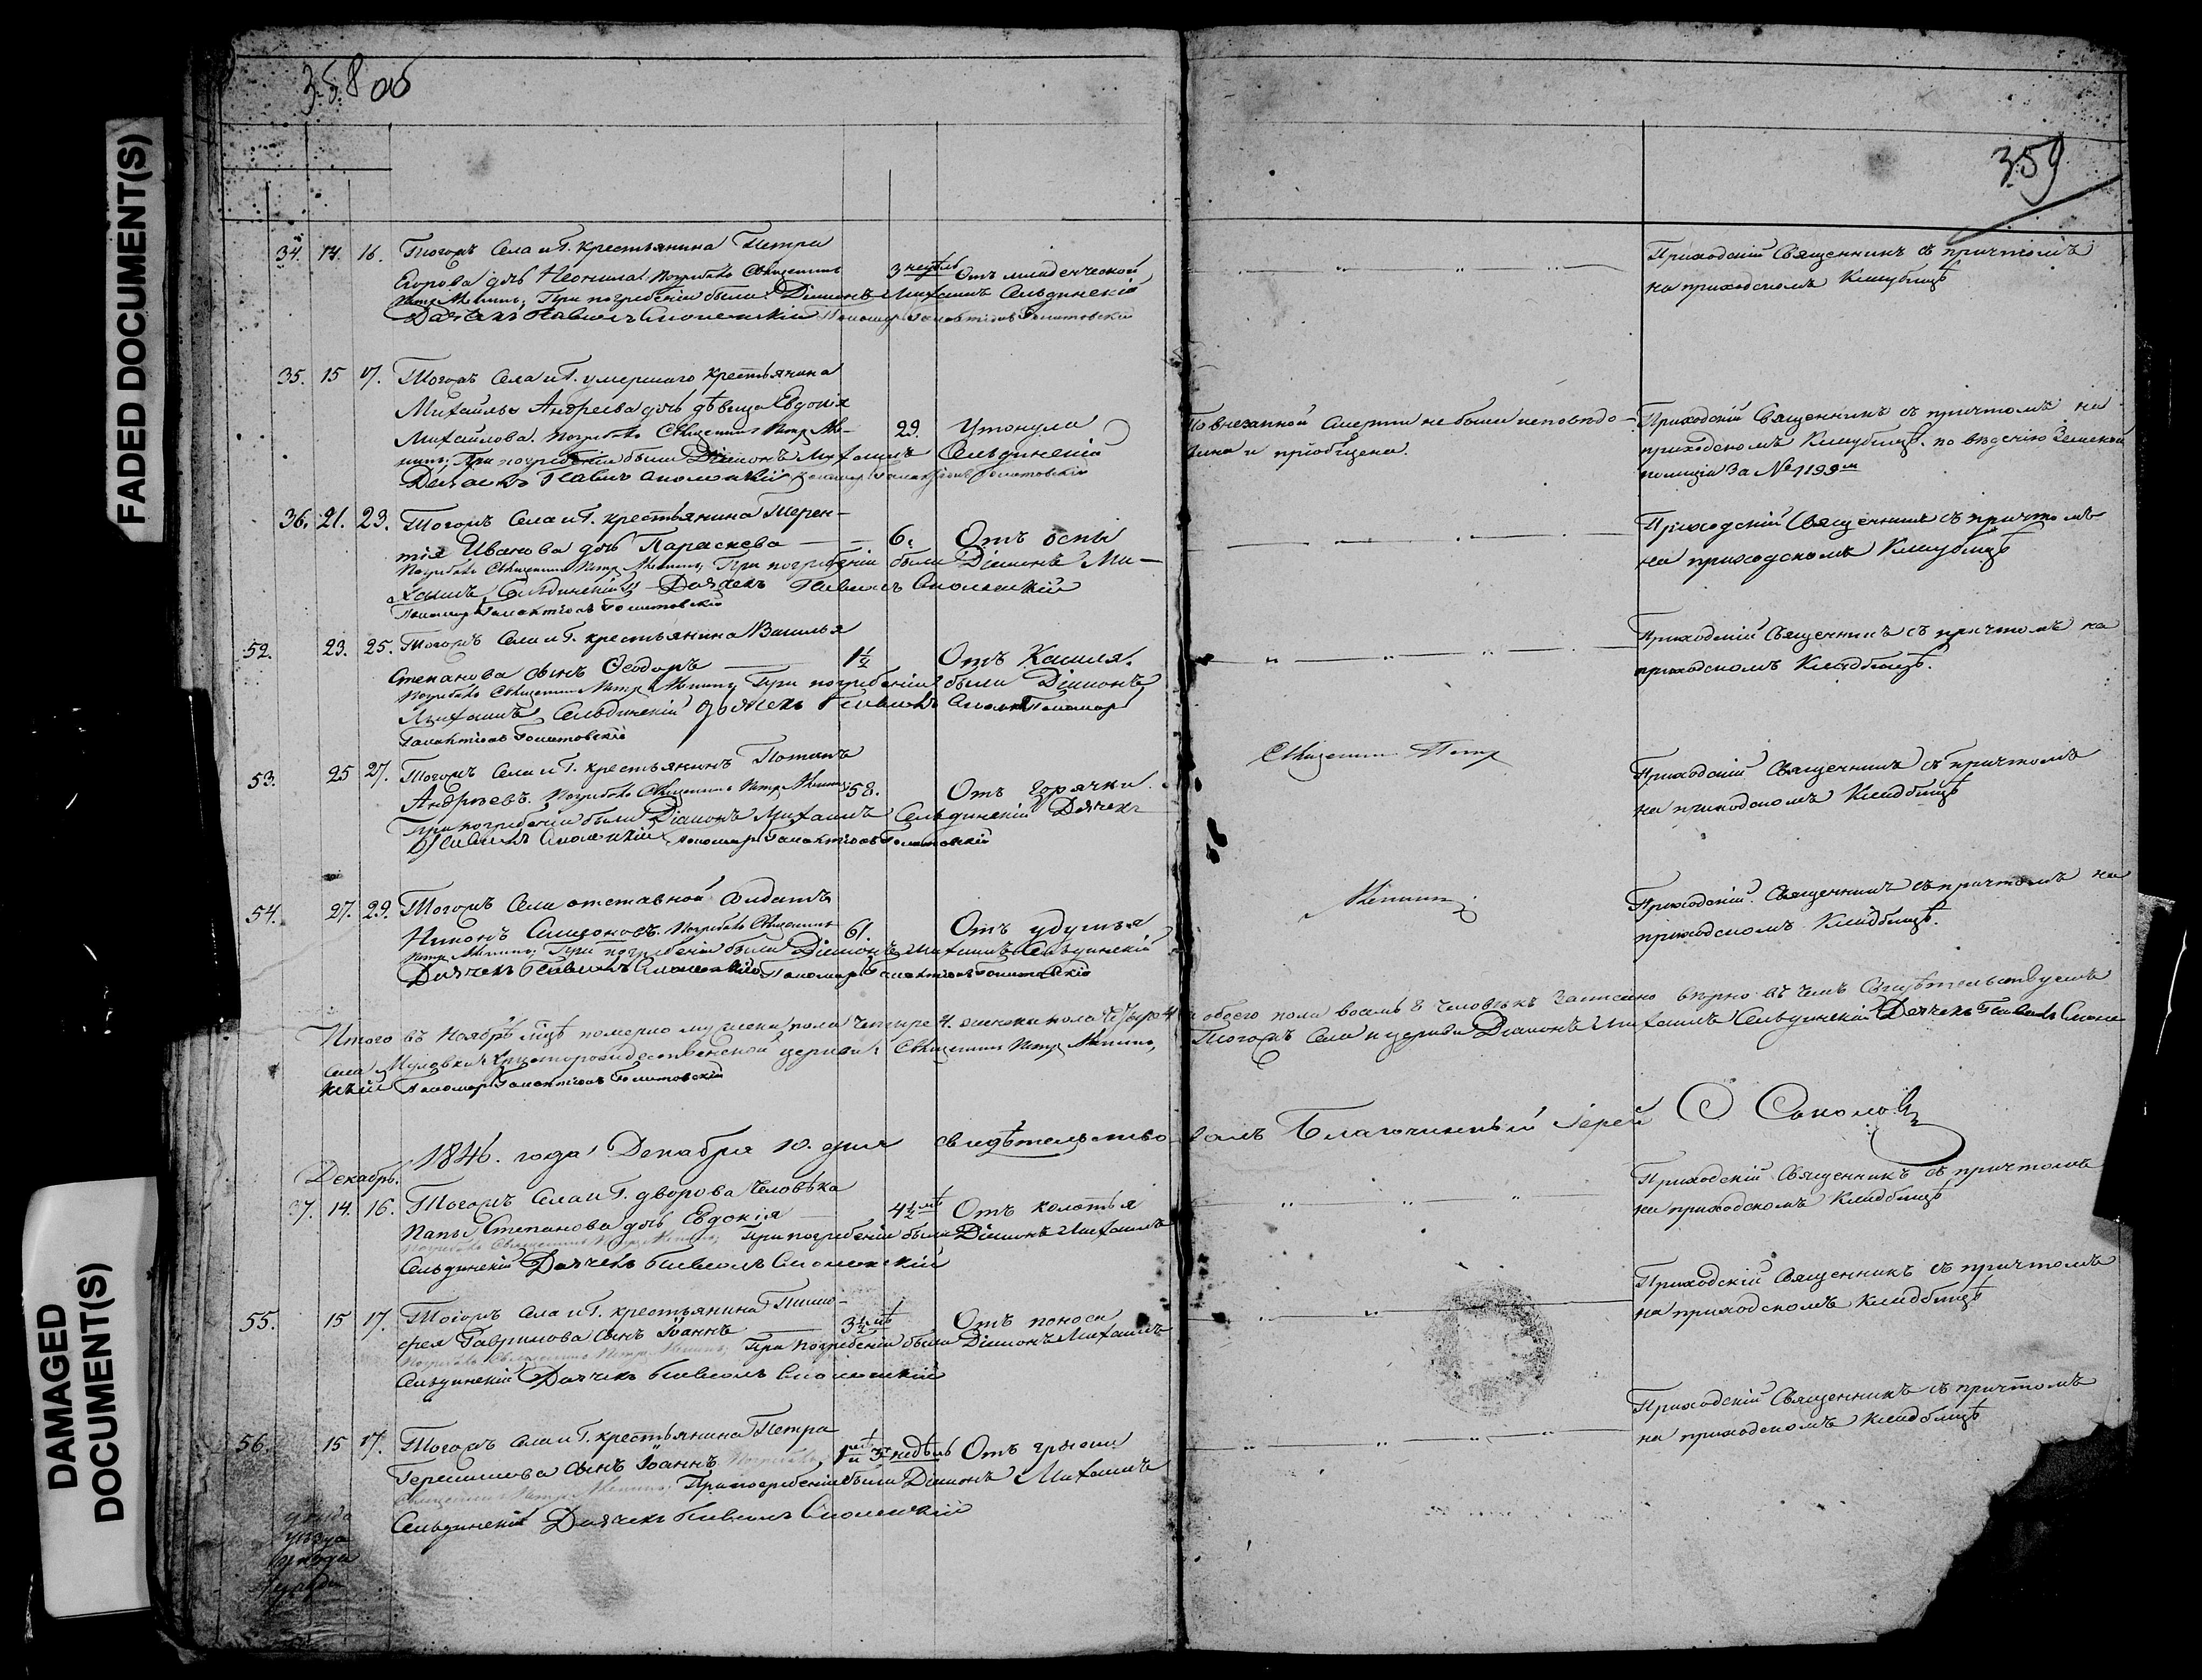 358 об
359
FADED DOCUMENT(S)
DAMAGED DOCUMENT(S)
34. 14. 16. Тогожъ Села и Г. крестьянина Петра
Егорова дочь Неонила. Погребалъ Священникъ 3 недѣль Отъ младенческой
Петръ При погребеніи были: Діаконъ Михаилъ Сельдинскій
Дьячекъ Павелъ Смоленскій Пономарь Галактіонъ
Приходскій Священникъ съ причтомъ
на приходскомъ Кладбищѣ
35. 15 17. Тогожъ Села и Г. умершаго крестьянина
Михайлы Андреева дочь дѣвица Евдокія
Михайлова. Погребалъ Священникъ Петръ 29. Утонула
При погребеніи были Діаконъ Михаилъ Сельдинскій
Дьячекъ Павелъ Смоленскій Пономарь Галактіонъ
По внезапной смерти не была исповѣдо-
вана и пріобщена.
Приходскій Священникъ съ причтомъ на
приходскомъ Кладбищѣ. по вѣденію Земской
полиціи За № 1199м
36. 21. 23. Тогожъ Села и Г. крестьянина Терен-
тія Иванова дочь Параскева 6. Отъ оспы
Погребалъ Священникъ Петръ При погребеніи были Діаконъ Ми-
хаилъ Сельдинскій Дьячекъ Павелъ Смоленскій
Пономарь Галактіонъ
Приходскій Священникъ съ причтомъ
на приходскомъ Кладбищѣ
52. 23. 25. Тогожъ Села и Г. крестьянина Василья
Степанова сынъ Ѳеодоръ 1½ Отъ Кашля.
Погребалъ Священникъ Петръ При погребеніи были Діаконъ
Михаилъ Сельдинскій Дьячекъ Павелъ Пономарь
Галактіонъ
Приходскій Священникъ съ причтомъ на
приходскомъ Кладбищѣ.
53. 25 27. Тогожъ Села и Г. крестьянинъ Потапъ
Андреевъ. Погребалъ Священникъ Петръ 58. Отъ горячки.
При погребеніи были Діаконъ Михаилъ Сельдинскій Дьячекъ
Павелъ Смоленскій Пономарь Галактіонъ
Священникъ Петръ
Приходскій Священникъ съ причтомъ
на приходскомъ Кладбищѣ
54. 27. 29. Тогожъ Села отставной солдатъ
Никонъ Погребалъ Священникъ 61. Отъ удушья
Петръ При погребеніи были Діаконъ Михаилъ Сельдинскій
Дьячекъ Павелъ Смоленскій Пономарь Галактіонъ
Приходскій Священникъ съ причтомъ на
приходскомъ Кладбищѣ.
Итого въ Ноябрѣ мѣсяцѣ померло мужеска пола четыре 4. женска пола четыре 4 и обоего пола восемь 8 человѣкъ Записано вѣрно въ чемъ Свидѣтельствуемъ
Села Христорождественской церкви: Священникъ Петръ Тогожъ Села и церкви Діаконъ Михаилъ Сельдинскій Дьячекъ Павелъ Смоле
нскій Пономарь Галактіонъ
1846. года Декабря 10. дня свидѣтельствовалъ Благочинный Іерей С Соколовъ
Декабрь.
37. 14. 16. Тогожъ Села и Г. дворова человѣка
Степанова дочь Евдокія 4½ лѣт Отъ колотья
При погребеніи были Діаконъ Михаилъ
Сельдинскій Дьячекъ Павелъ Смоленскій
Приходскій Священникъ съ причтомъ
на приходскомъ Кладбищѣ
55. 15 17. Тогожъ Села и Г. крестьянина Тимо-
фея Гаврилова сынъ Іоаннъ 3½ лѣт Отъ поноса
При погребеніи были Діаконъ Михаилъ
Сельдинскій Дьячекъ Павелъ Смоленскій
Приходскій Священникъ съ причтомъ
на приходскомъ Кладбищѣ
56. 15 17. Тогожъ Села и Г. крестьянина Петра
Герасимова сынъ Іоаннъ недѣль Отъ грыжи
При погребеніи были Діаконъ Михаилъ
Сельдинскій Дьячекъ Павелъ Смоленскій
Приходскій Священникъ съ причтомъ
на приходскомъ Кладбищѣ